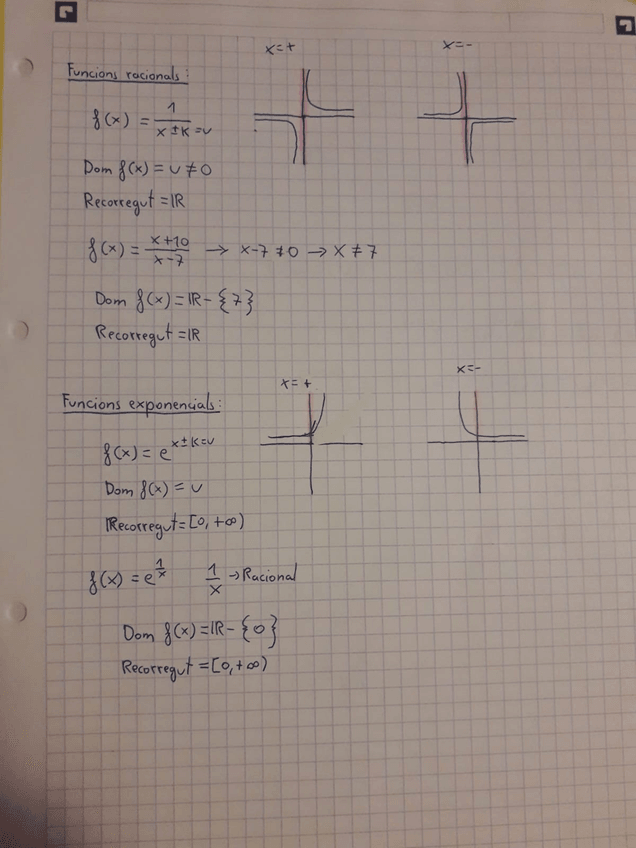 x=+ x=-
Funcions racionals:
f(x) = 1/(x ± K = u)
Dom f(x) = u ≠ 0
Recorregut = IR
f(x) = (x+10)/(x-7) → x-7 ≠ 0 → x ≠ 7
Dom f(x) = IR - {7}
Recorregut = IR
x=+ x=-
Funcions exponencials:
f(x) = e^(x ± K = u)
Dom f(x) = u
Recorregut = [0, +∞)
f(x) = e^(1/x) 1/x → Racional
Dom f(x) = IR - {0}
Recorregut = [0, +∞)